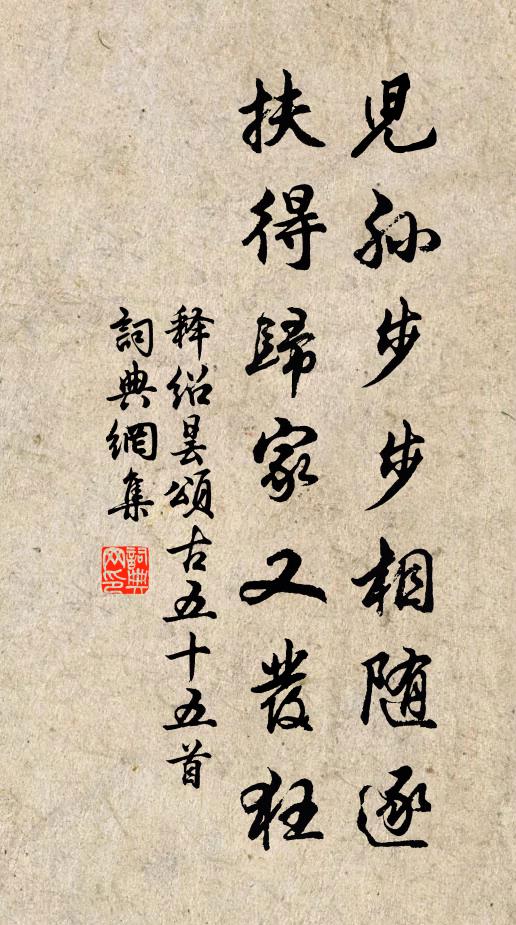 児孙步步相随逐
扶得歸家又發狂
释绍昙頌古五十五首
詞典網集
詞典網印